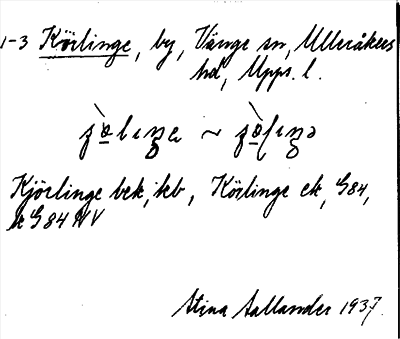 1-3 Körlinge, by, Vänge sn, Ulleråkers
hd, Upps. l.
Kjörlinge bek, kb, Körlinge ek, G84,
k G84 NV
Stina Sallander 1937.